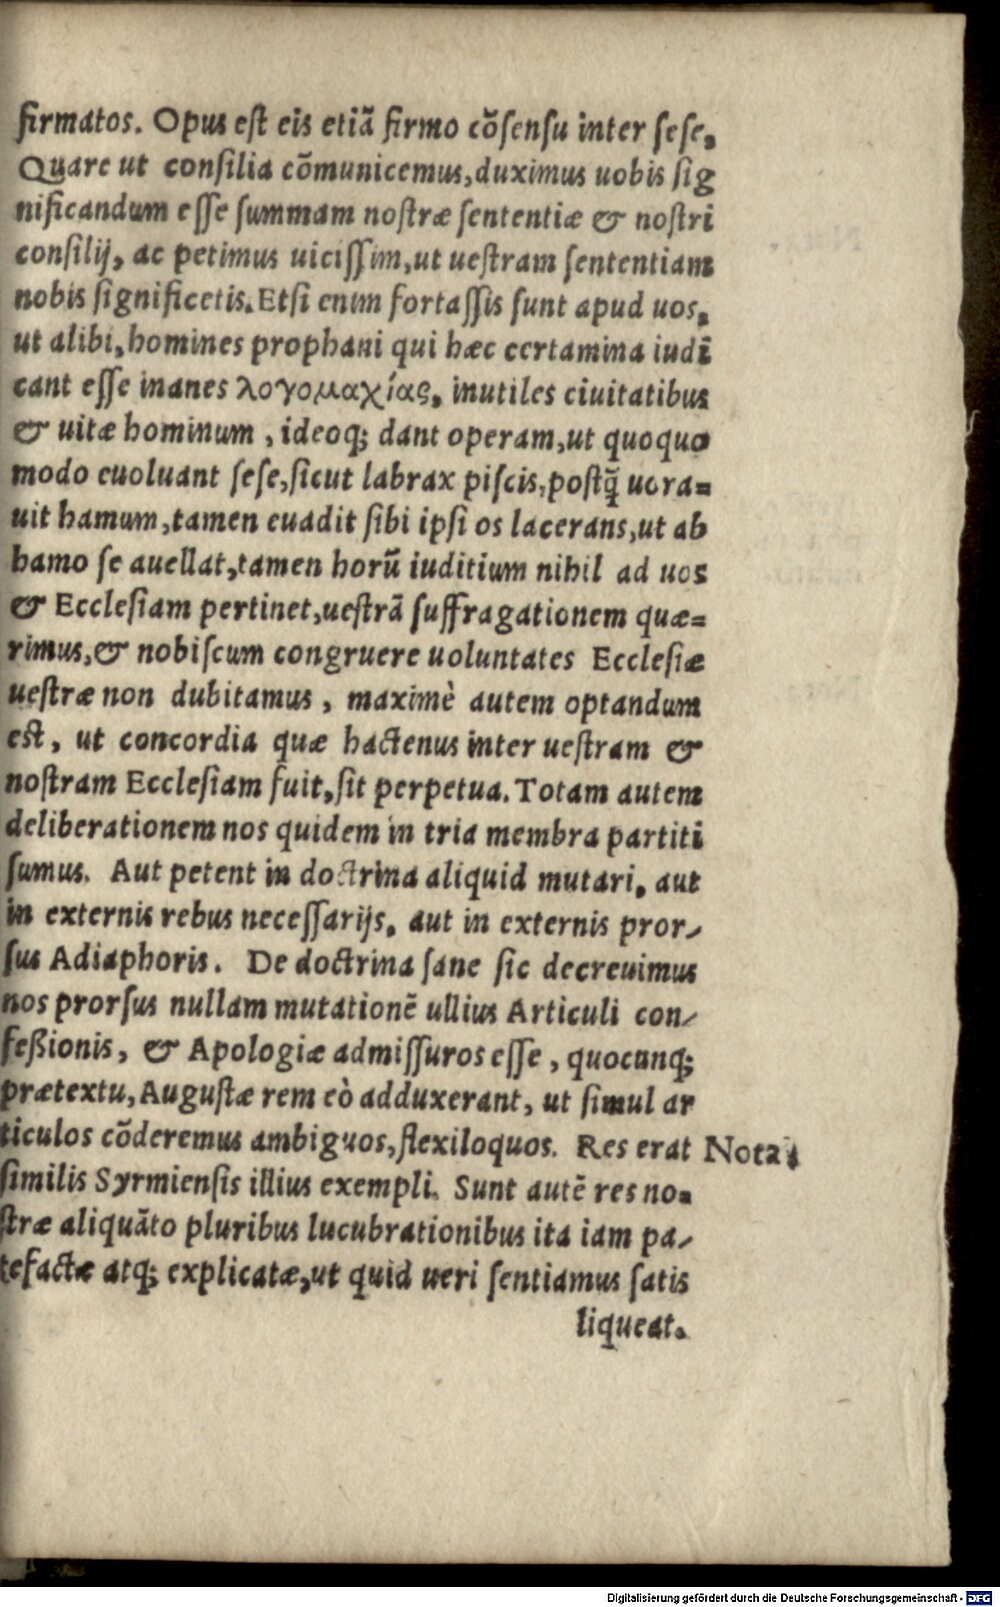 firmatos. Opus est eis etiã firmo cõsensu inter sese,
Quare ut consilia cõmunicemus, duximus uobis sig
nificandum esse summam nostræ sententiæ & nostri
consilij, ac petimus uicissim, ut uestram sententiam
nobis significetis. Etsi enim fortassis sunt apud uos,
ut alibi, homines prophani qui hæc certamina iudi
cant esse inanes λογομαχίας, inutiles ciuitatibus
& uitæ hominum, ideoq; dant operam, ut quoquo
modo euoluant sese, sicut labrax piscis, postq̃ uora=
uit hamum, tamen euadit sibi ipsi os lacerans, ut ab
hamo se auellat, tamen horũ iuditium nihil ad uos
& Ecclesiam pertinet, uestrã suffragationem quæ=
rimus, & nobiscum congruere uoluntates Ecclesiæ
uestræ non dubitamus, maximè autem optandum
est, ut concordia quæ hactenus inter uestram &
nostram Ecclesiam fuit, sit perpetua. Totam autem
deliberationem nos quidem in tria membra partiti
sumus. Aut petent in doctrina aliquid mutari, aut
in externis rebus necessarijs, aut in externis pror-
sus Adiaphoris. De doctrina sane sic decreuimus
nos prorsus nullam mutationẽ ullius Articuli con-
feßionis, & Apologiæ admissuros esse, quocunq;
prætextu, Augustæ rem eò adduxerant, ut simul ar
ticulos cõderemus ambiguos, flexiloquos. Res erat Nota
similis Syrmiensis illius exempli. Sunt autẽ res no=
stræ aliquãto pluribus lucubrationibus ita iam pa-
tefactæ atq; explicatæ, ut quid ueri sentiamus satis
liqueat.
Digitalisierung gefördert durch die Deutsche Forschungsgemeinschaft - DFG